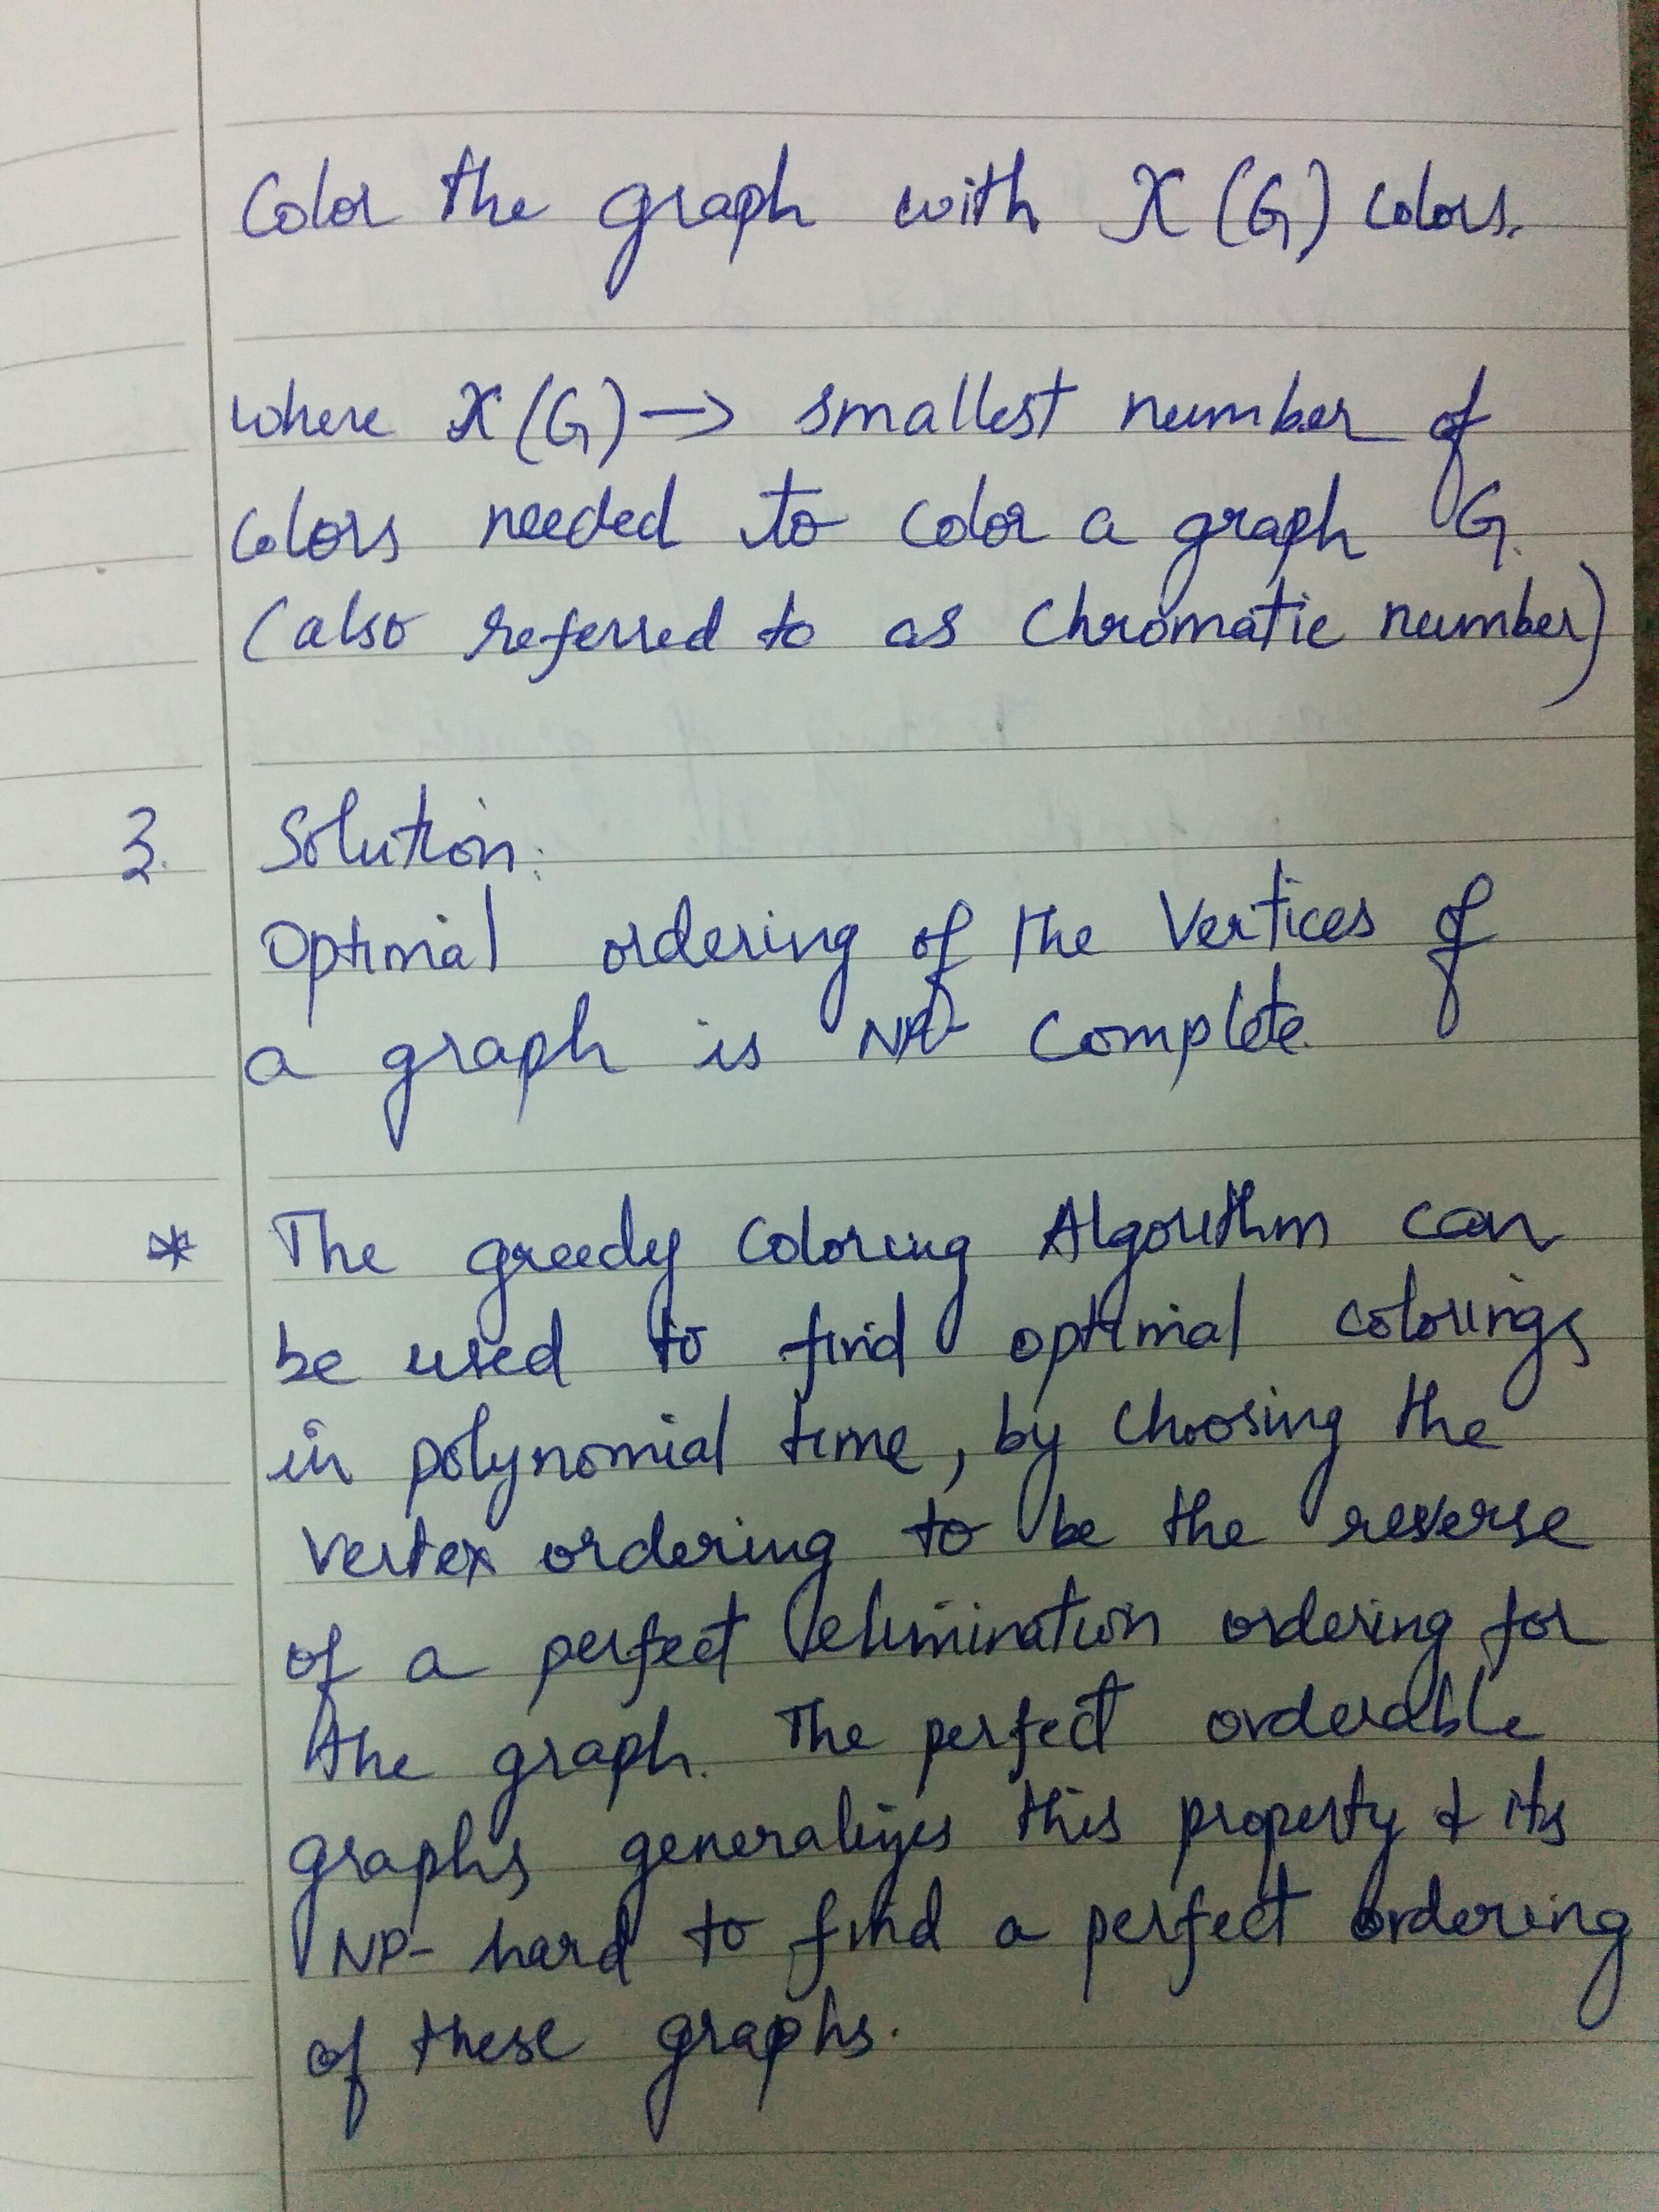 Color the graph with χ(G) colors.
where χ(G) → smallest number of
colors needed to color a graph G.
(also referred to as Chromatic number)
3. Solution:
Optimal ordering of the Vertices of
a graph is NP- Complete.
* The greedy Coloring Algorithm can
be used to find optimal colorings
in polynomial time, by choosing the
vertex ordering to be the reverse
of a perfect elimination ordering for
the graph. The perfect orderable
graphs generalizes this property & its
NP- hard to find a perfect ordering
of these graphs.